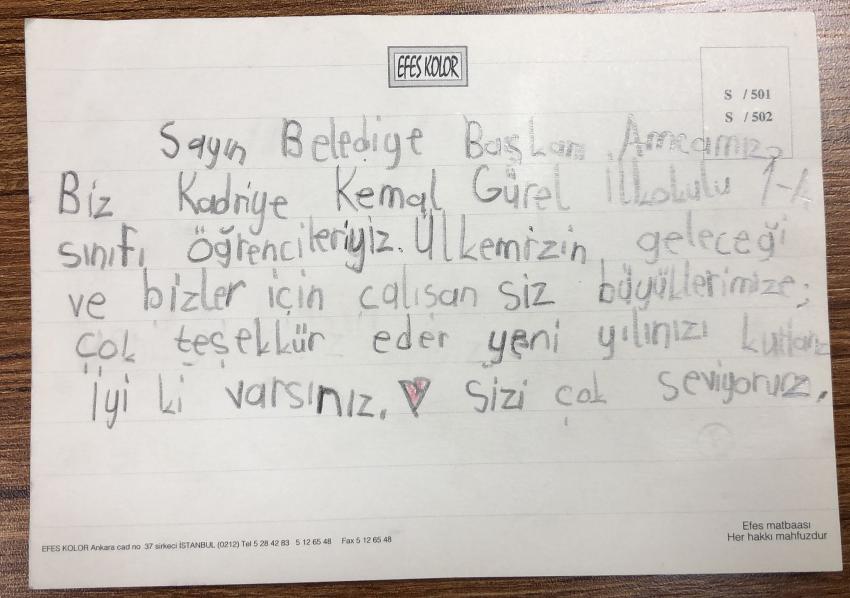 EFES KOLOR
S / 501
S / 502
Sayın Belediye Başkanı Amcamız,
Biz Kadriye Kemal Gürel İlkokulu 1-
sınıfı öğrencileriyiz. Ülkemizin geleceği
ve bizler için çalışan siz büyüklerimize;
çok teşekkür eder yeni yılınızı kutlarız
İyi ki varsınız. ♥ Sizi çok seviyoruz.
EFES KOLOR Ankara cad no 37 sirkeci İSTANBUL (0212) Tel 5 28 42 83 5 12 65 48 Fax 5 12 65 48
Efes matbaası
Her hakkı mahfuzdur